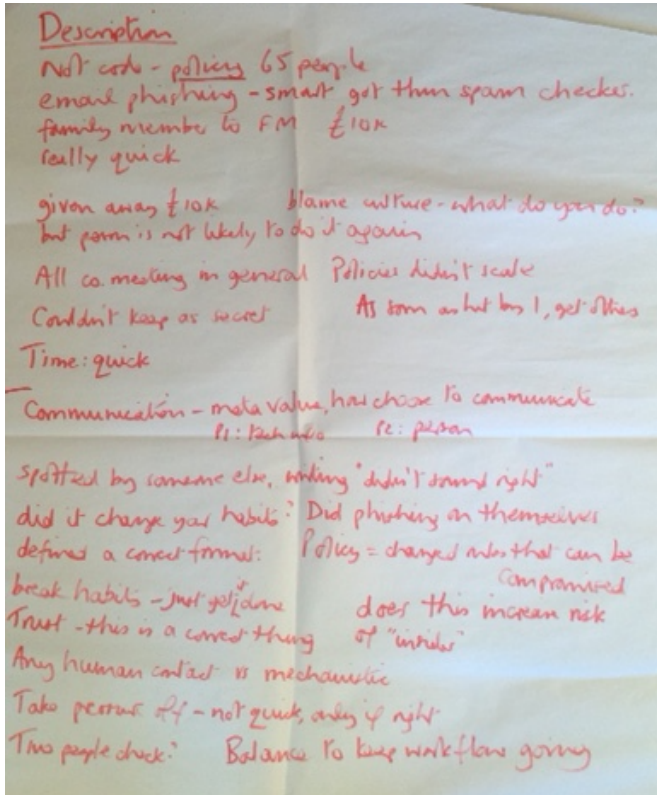 Description
Not code - policy 65 people
email phishing - smart got thru spam checker.
family member to FM £10k
really quick
given away £10k blame culture - what do you do?
but person is not likely to do it again
All co. meeting in general Policies didn't scale
Couldn't keep as secret As soon as hit by 1, get others
Time: quick
Communication - meta value, how choose to communicate
P1: tech info P2: person
spotted by someone else, writing "didn't sound right"
did it change your habits? Did phishing on themselves
defined a correct format: Policy = changed rules that can be
compromised
break habits - just get it done does this increase risk
Trust - this is a correct thing of "insider"
Any human contact is mechanistic
Take pressure off - not quick, only if right
Two people check? Balance to keep workflow going